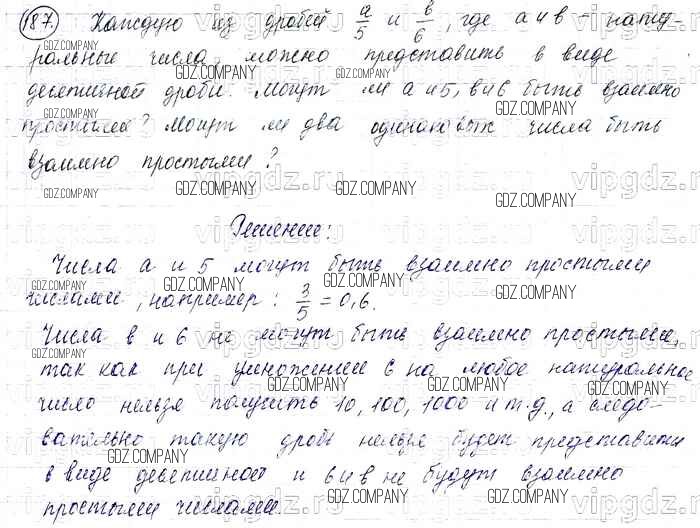 187. Каждую из дробей a/5 и b/6, где a и b – нату-
ральные числа, можно представить в виде
десятичной дроби. Могут ли a и 5, b и 6 быть взаимно
простыми? Могут ли два одинаковых числа быть
взаимно простыми?
Решение:
Числа a и 5 могут быть взаимно простыми
числами, например: 3/5 = 0,6.
Числа b и 6 не могут быть взаимно простыми,
так как при умножении 6 на любое натуральное
число нельзя получить 10, 100, 1000 и т.д., а следо-
вательно такую дробь нельзя будет представить
в виде десятичной и 6 и b не будут взаимно
простыми числами.
GDZ.COMPANY
vipgdz.ru